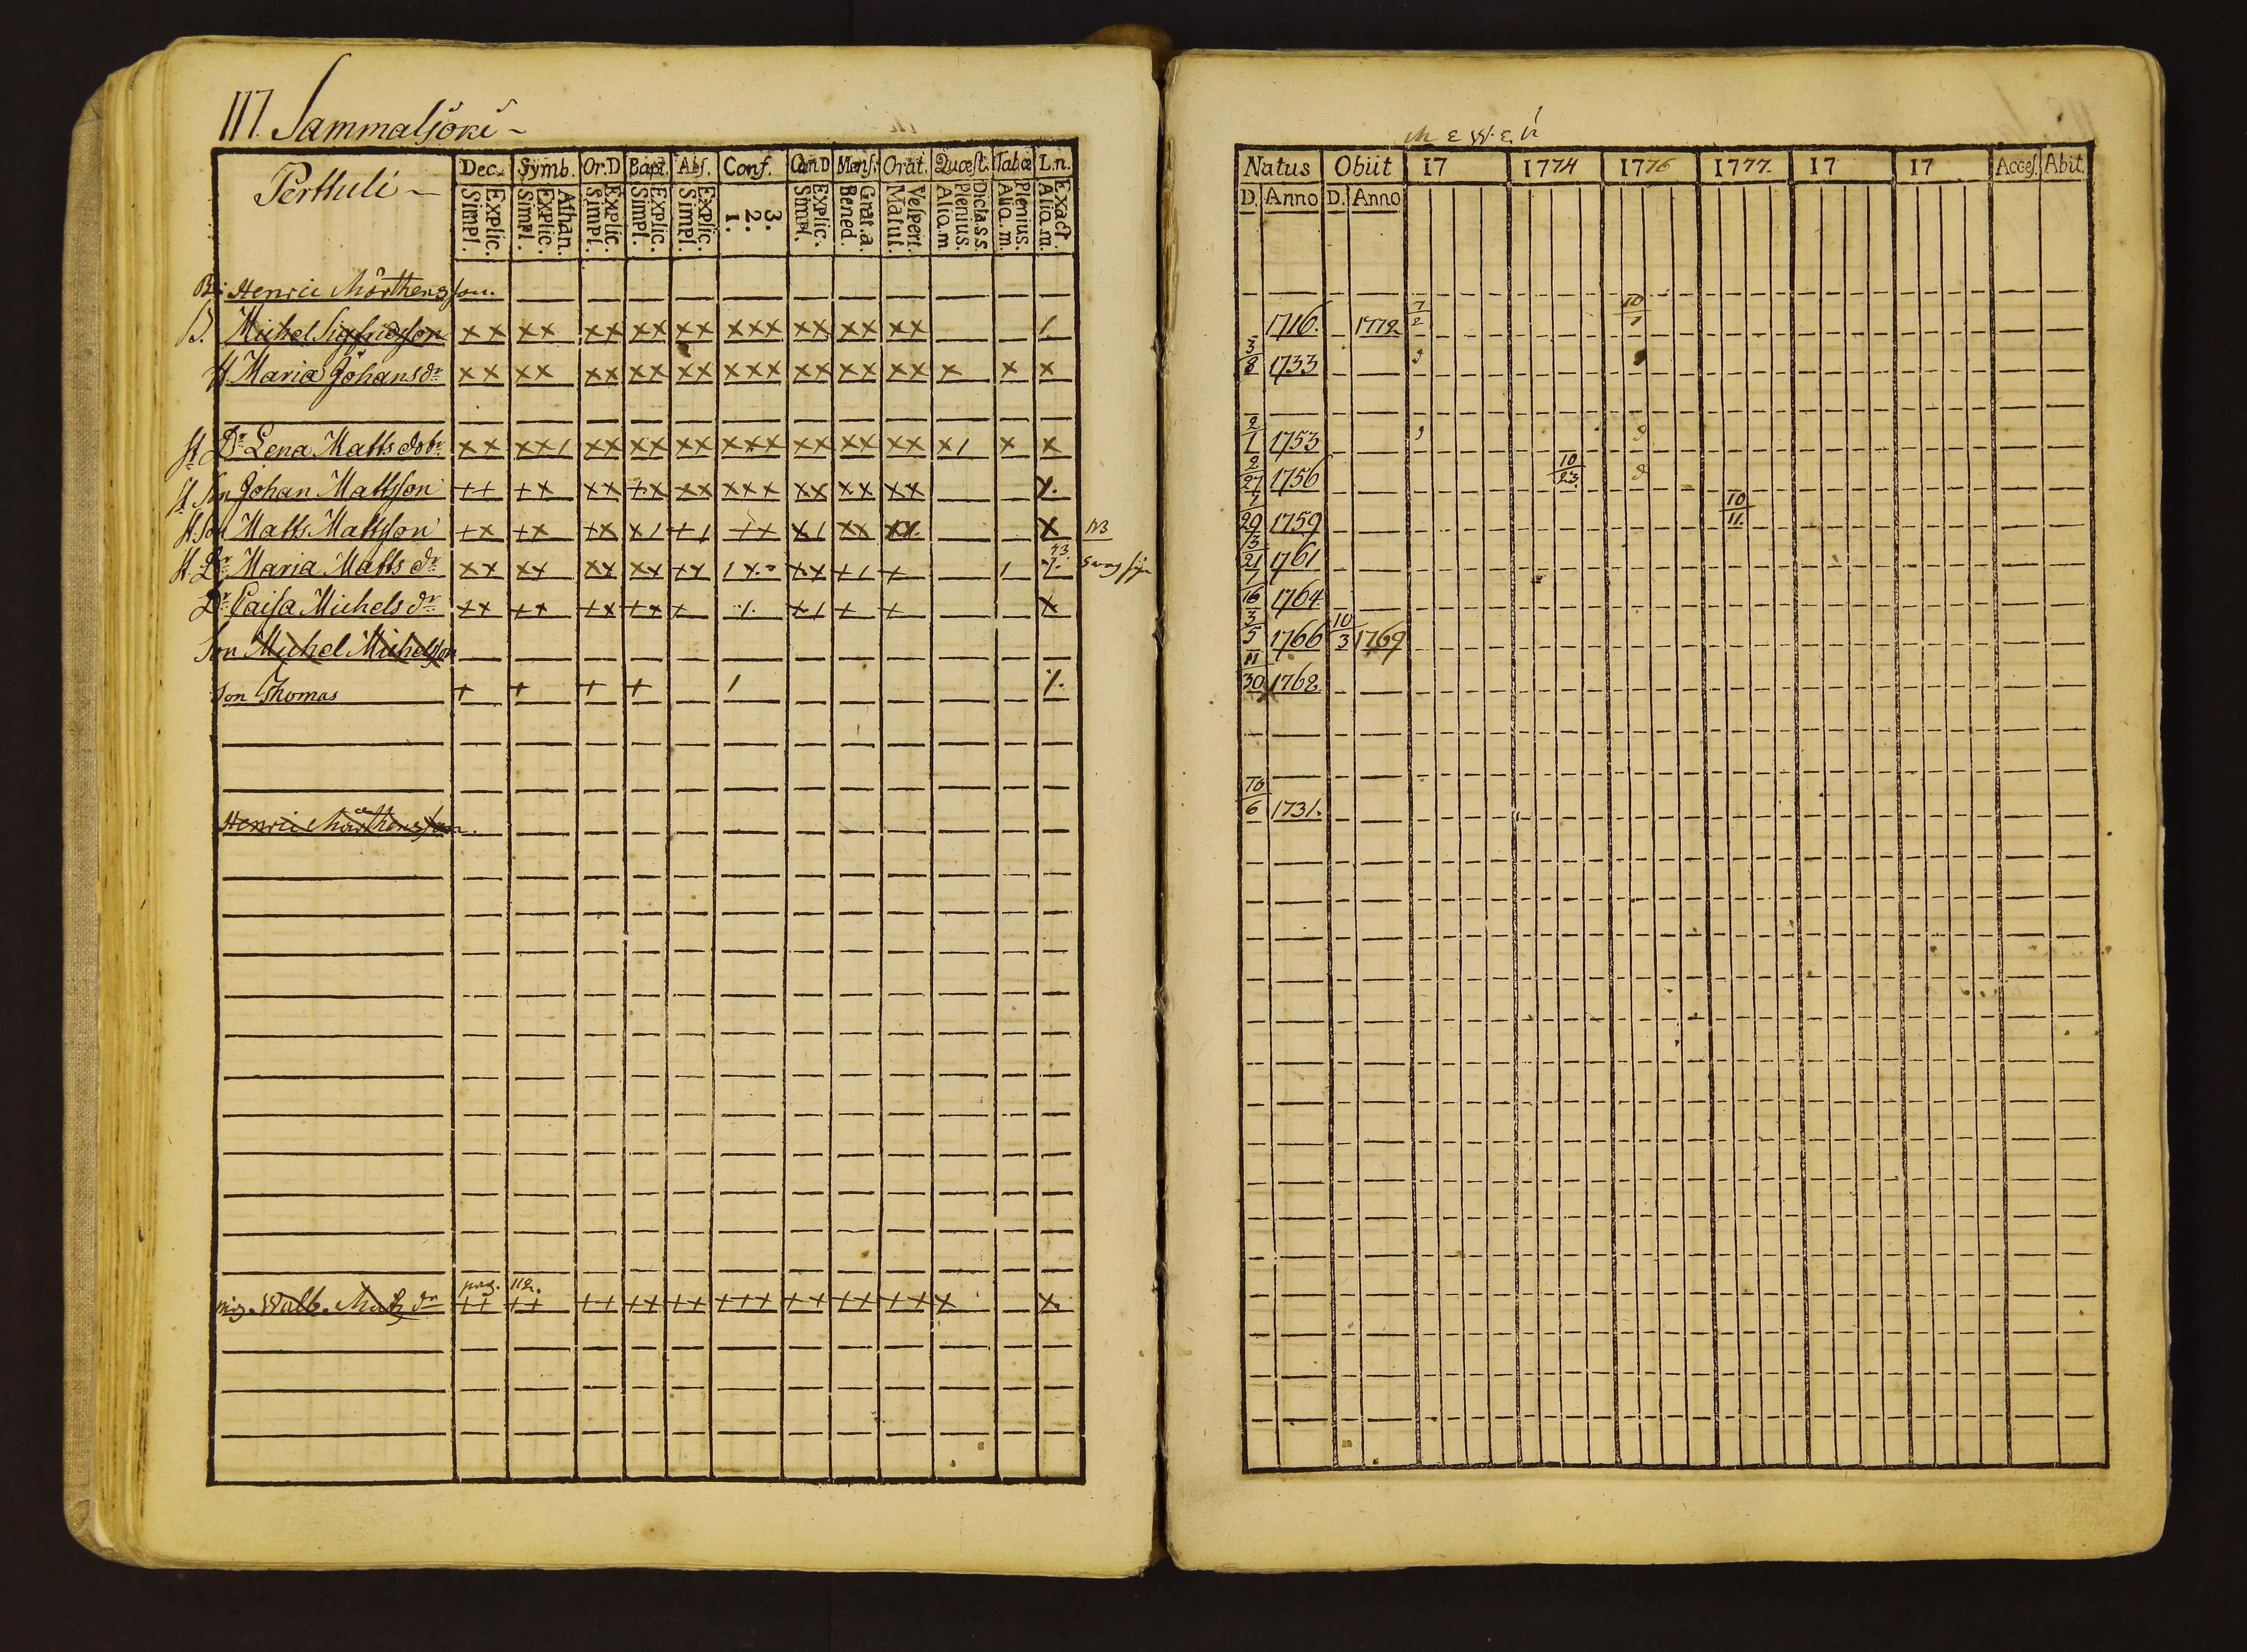 117. Sammaljoki
Perttuli
Dec. Symb. Or.D Bapt. Abs. Conf. Cœn.D Mens. Orat. Quæst. Tabæ L.n.
Explic. Simpl. Athan. Explic. Simpl. Explic. Simpl. Explic. Simpl. Explic. Simpl. 3. 2. 1. Explic. Simpl. Grat.a. Bened. Vespert. Matut. Dicta.s.s. Plenius. Aliq.m. Plenius. Aliq.m. Exact. Aliq.m.
Henric Mårthensson.
B. Michel Sigfridsson xx xx xx xx xx xxx xx xx xx /
H. Maria Johans dr xx xx xx xx xx xxx xx xx xx x x x
Dr Lena Matts dotr xx xx/ xx xx xx xxx xx xx xx x/ x x
Son Johan Mattsson ++ +x xx +x xx xxx xx xx xx
Son Matts Mattsson +x +x +x x/ +/ ++ x/ xx xx x NB
Dr Maria Matts dr xx xx xx xx xx xx +/ +
Dr Caisa Michels dr ++ ++ +x ++ x +/ + + x
Son Michel Michelsson
Son Thomas + + + + /
Henric Mårthensson.
pag. 112.
pig. Walb. Matts dr ++ ++ ++ ++ ++ +++ ++ ++ ++ x x
Natus Obiit 17 1774 1776 1777. 17 17 Acces. Abit.
D. Anno D. Anno
1716. 1772 7/2 10/1
3/8 1733
2/1 1753
2/27 1756 10/23
7/29 1759 10/11.
3/21 1761
7/16 1764
3/5 1766 10/3 1769
11/30 1768
10/6 1731.